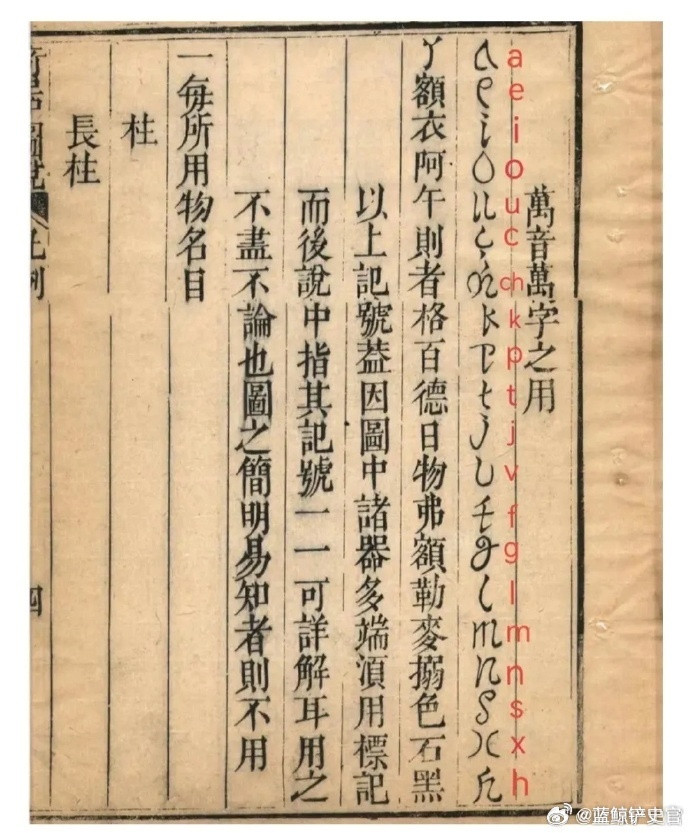 萬音萬字之用
a e i o u c ch k p t j v f g l m n s x h
a e i o u c ch k p t j v f g l m n s x h
丫額衣阿午則者格百德日物弗額勒麥搦色石黑
以上記號葢因圖中諸器多端湏用標記
而後說中指其記號一一可詳解耳用之
不盡不論也圖之簡明易知者則不用
一每所用物名目
柱
長柱
圖說
凡例
四
@蓝鲸铲史官